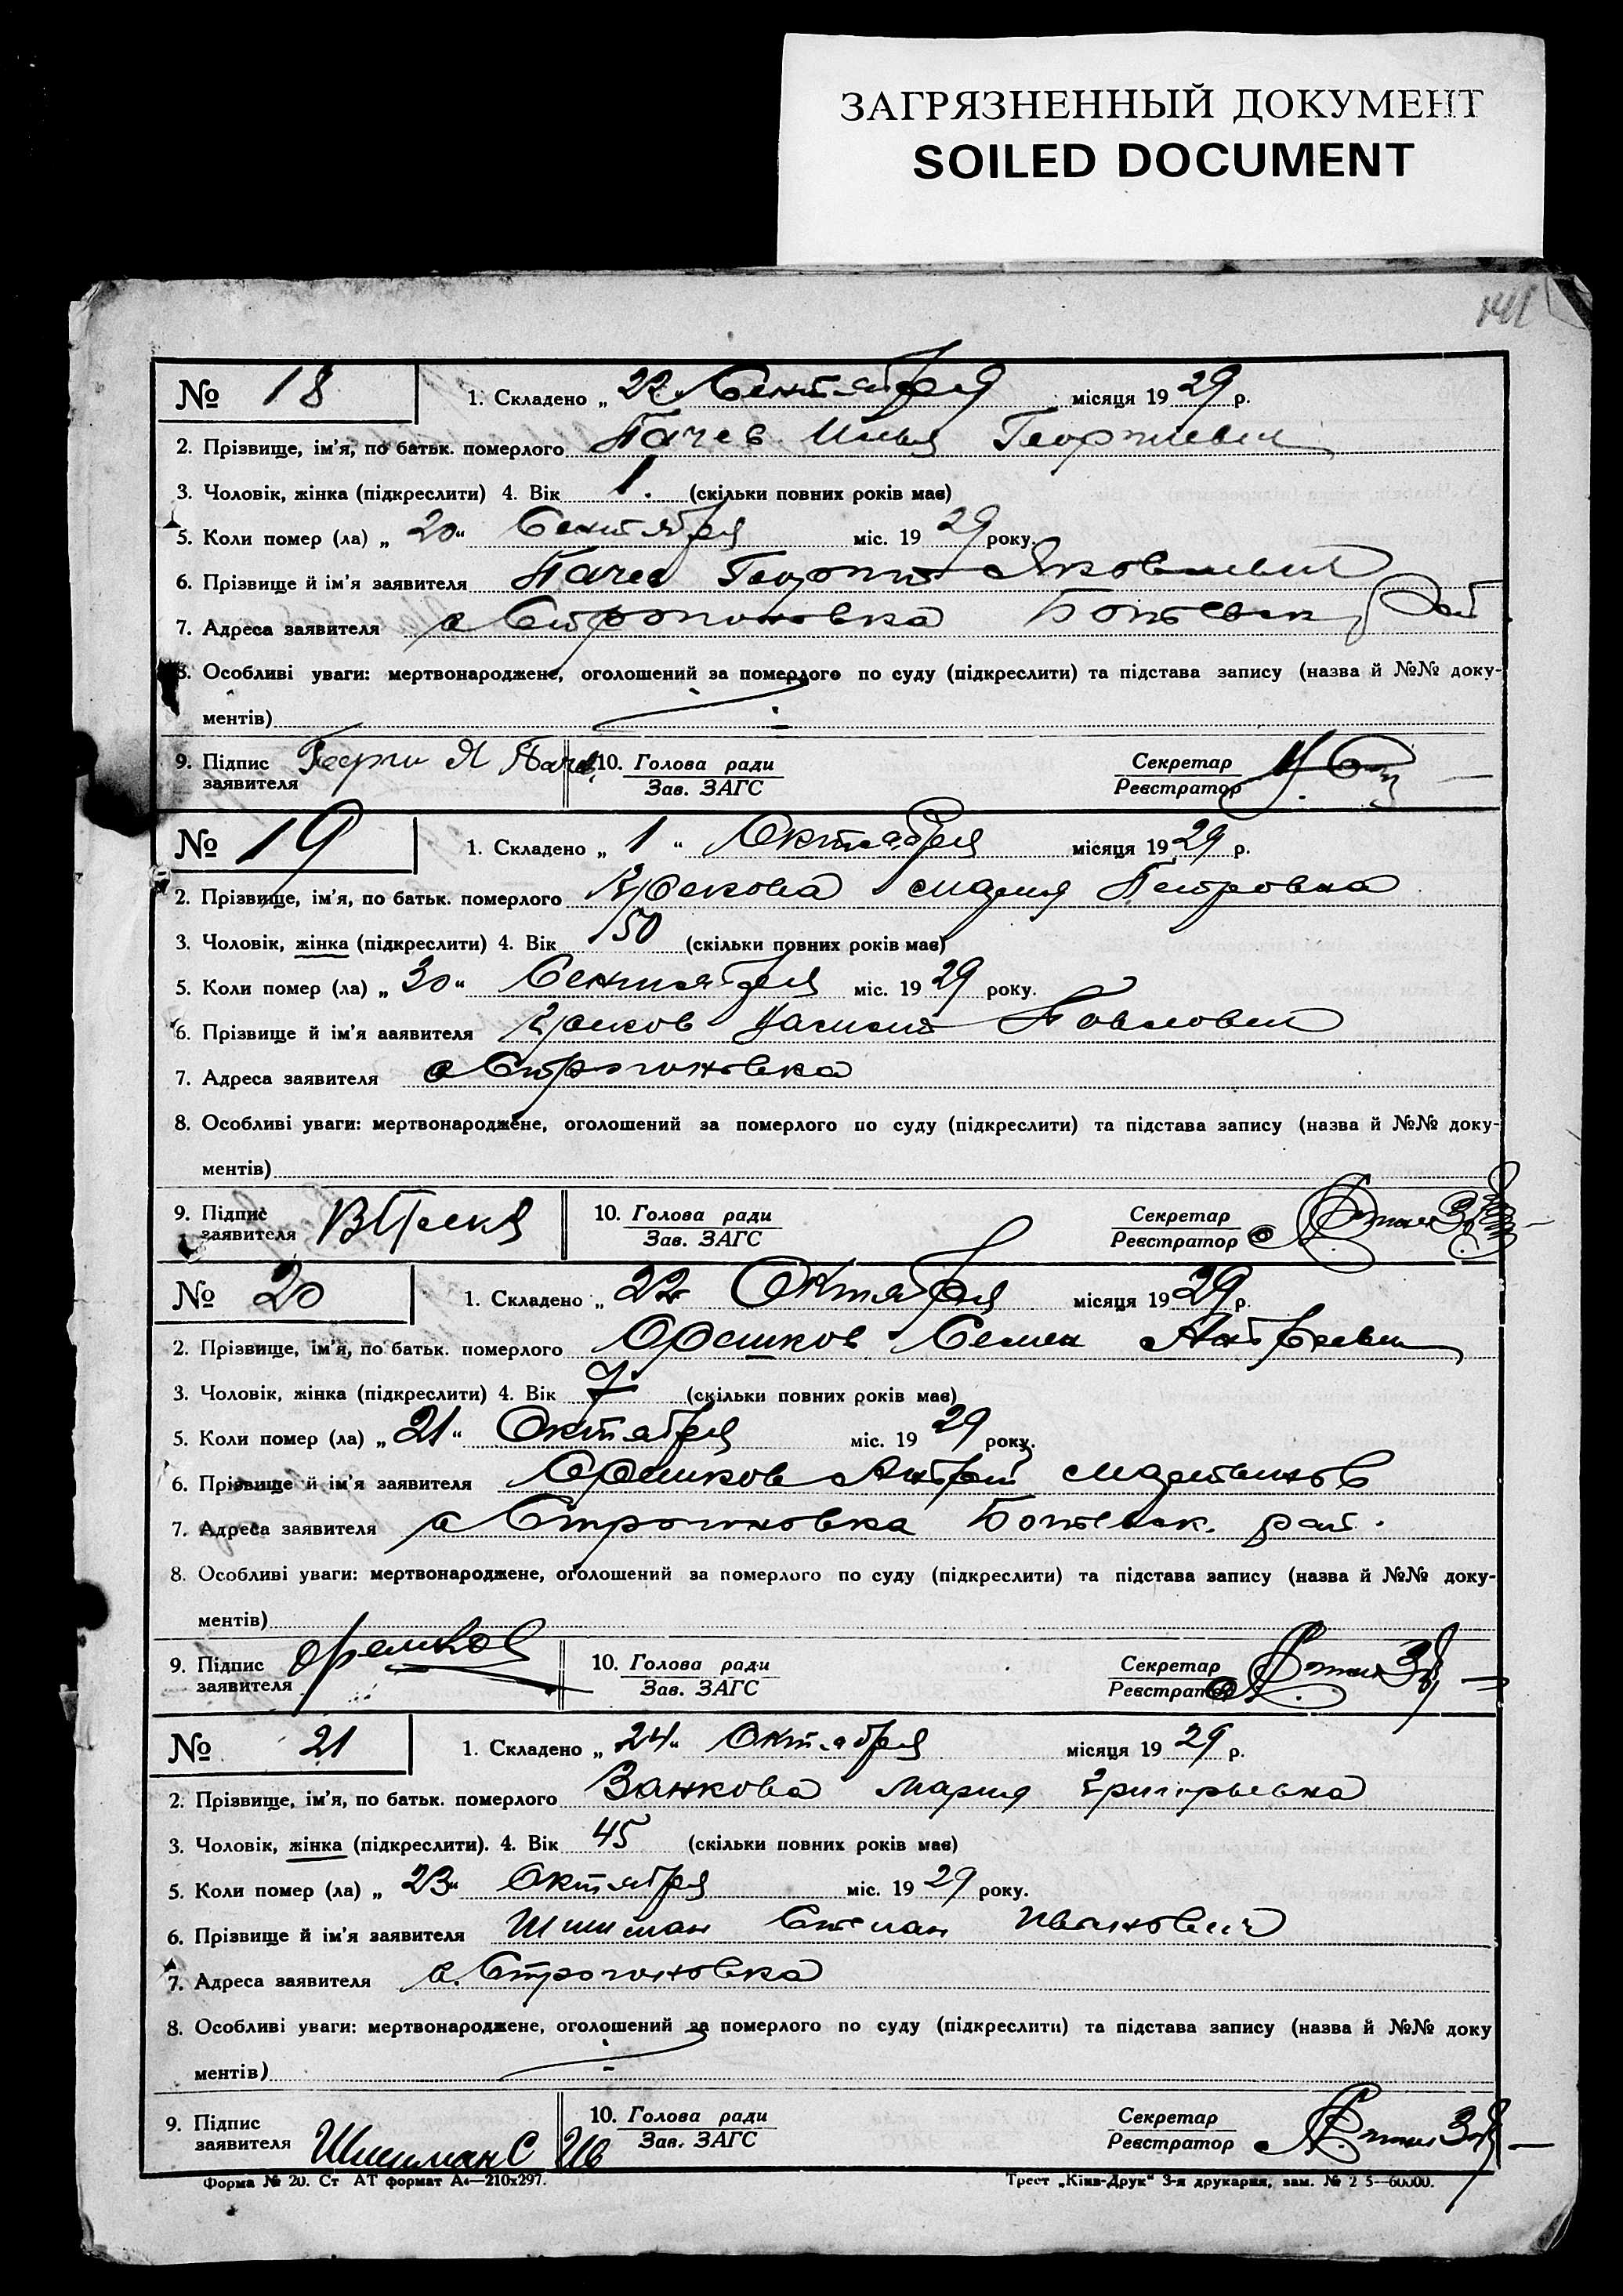 ЗАГРЯЗНЕННЫЙ ДОКУМЕНТ
SOILED DOCUMENT
№ 18 1. Складено „ 22 “ Сентября місяця 19 29 р.
2. Прізвище, ім’я, по батьк. померлого Пачев Илья Георгиевич
3. Чоловік, жінка (підкреслити) 4. Вік 1. (скільки повних років має)
5. Коли помер (ла) „ 20 “ Сентября міс. 19 29 року.
6. Прізвище й ім’я заявителя Пачев Георгий Яковлевич
7. Адреса заявителя с Строгоновка Ботевск Рай
8. Особливі уваги: мертвонароджене, оголошений за померлого по суду (підкреслити) та підстава запису (назва й №№ доку-
ментів)
9. Підпис Георги Я Пачев 10. Голова ради Секретар
заявителя Зав. ЗАГС Реєстратор
№ 19 1. Складено „ 1 “ Октября місяця 19 29 р.
2. Прізвище, ім’я, по батьк. померлого Мария Петровна
3. Чоловік, жінка (підкреслити) 4. Вік 50 (скільки повних років має)
5. Коли помер (ла) „ 30 “ Сентября міс. 19 29 року.
6. Прізвище й ім’я заявителя Павлович
7. Адреса заявителя с Строгоновка
8. Особливі уваги: мертвонароджене, оголошений за померлого по суду (підкреслити) та підстава запису (назва й №№ доку-
ментів)
9. Підпис 10. Голова ради Секретар
заявителя Зав. ЗАГС Реєстратор
№ 20 1. Складено „ 22 Октября місяця 19 29 р.
2. Прізвище, ім’я, по батьк. померлого Орешков Семен Андреевич
3. Чоловік, жінка (підкреслити) 4. Вік 7 (скільки повних років має)
5. Коли помер (ла) „ 21 “ Октября міс. 19 29 року.
6. Прізвище й ім’я заявителя Орешков Андрей Мартынов
7. Адреса заявителя с Строгоновка Ботевск. рай.
8. Особливі уваги: мертвонароджене, оголошений за померлого по суду (підкреслити) та підстава запису (назва й №№ доку-
ментів)
9. Підпис Орешков 10. Голова ради Секретар
заявителя Зав. ЗАГС Реєстратор
№ 21 1. Складено „ 24 “ Октября місяця 19 29 р.
2. Прізвище, ім’я, по батьк. померлого Занкова Мария Григорьевна
3. Чоловік, жінка (підкреслити). 4. Вік 45 (скільки повних років має)
5. Коли помер (ла) „ 23 “ Октября міс. 19 29 року.
6. Прізвище й ім’я заявителя Шишман Степан Иванович
7. Адреса заявителя с. Строгоновка
8. Особливі уваги: мертвонароджене, оголошений за померлого по суду (підкреслити) та підстава запису (назва й №№ доку
ментів)
9. Підпис Шишман С Ив 10. Голова ради Секретар
заявителя Зав. ЗАГС Реєстратор
Форма № 20. Ст АТ формат А4—210х297. Трест „Київ-Друк“ 3-я друкарня, зам. № 2 5—60000.